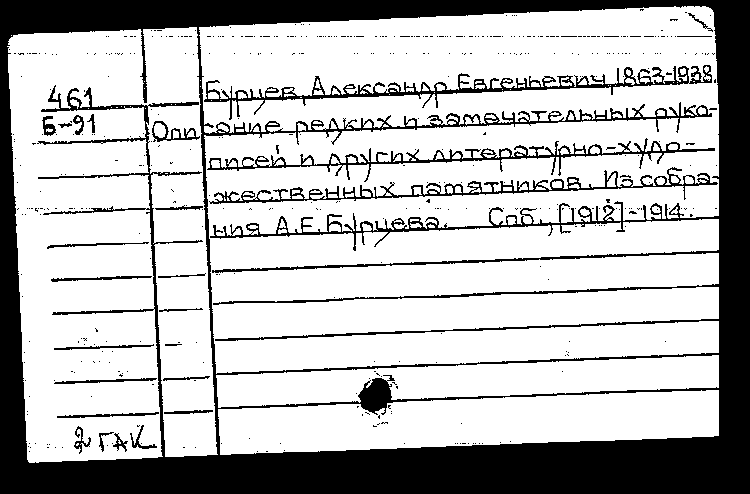 461
Б-91
Бурцев, Александр Евгеньевич, 1863-1938.
Описание редких и замечательных руко-
писей и других литературно-худо-
жественных памятников. Из собра-
ния А.Е. Бурцева. Спб., [1912]-1914.
2 ГАК